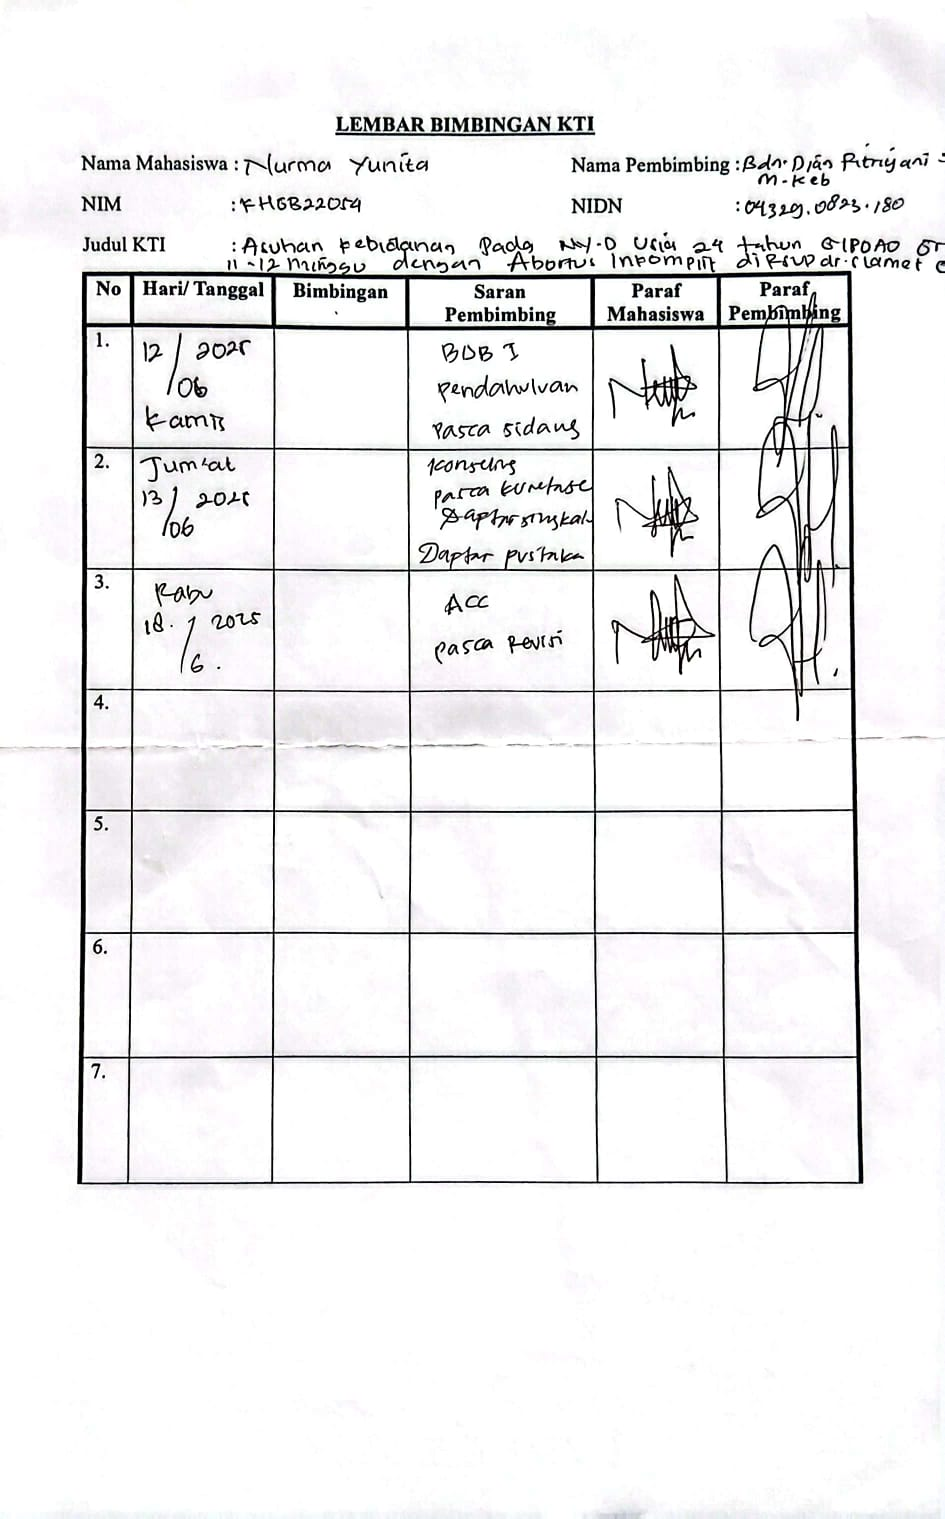 LEMBAR BIMBINGAN KTI
Nama Mahasiswa : Nurma Yunita
Nama Pembimbing : Bdn. Dian Fitriyani
M.Keb
NIM : KHGB22054
NIDN : 04329.0823.180
Judul KTI : Asuhan Kebidanan Pada Ny.D Usia 24 tahun G1P0A0
11-12 Minggu dengan Abortus Inkomplit di RSUD dr. Slamet
No Hari/ Tanggal Bimbingan Saran Pembimbing Paraf Mahasiswa Paraf Pembimbing
1.
12/06 2025
Kamis
BAB I
Pendahuluan
Pasca sidang
2.
Jum'at
13/06 2025
Konseling
Pasca Kuretase
Daptar singkat
Daptar pustaka
3.
Rabu
18. / 2025
6.
ACC
Pasca Revisi
4.
5.
6.
7.